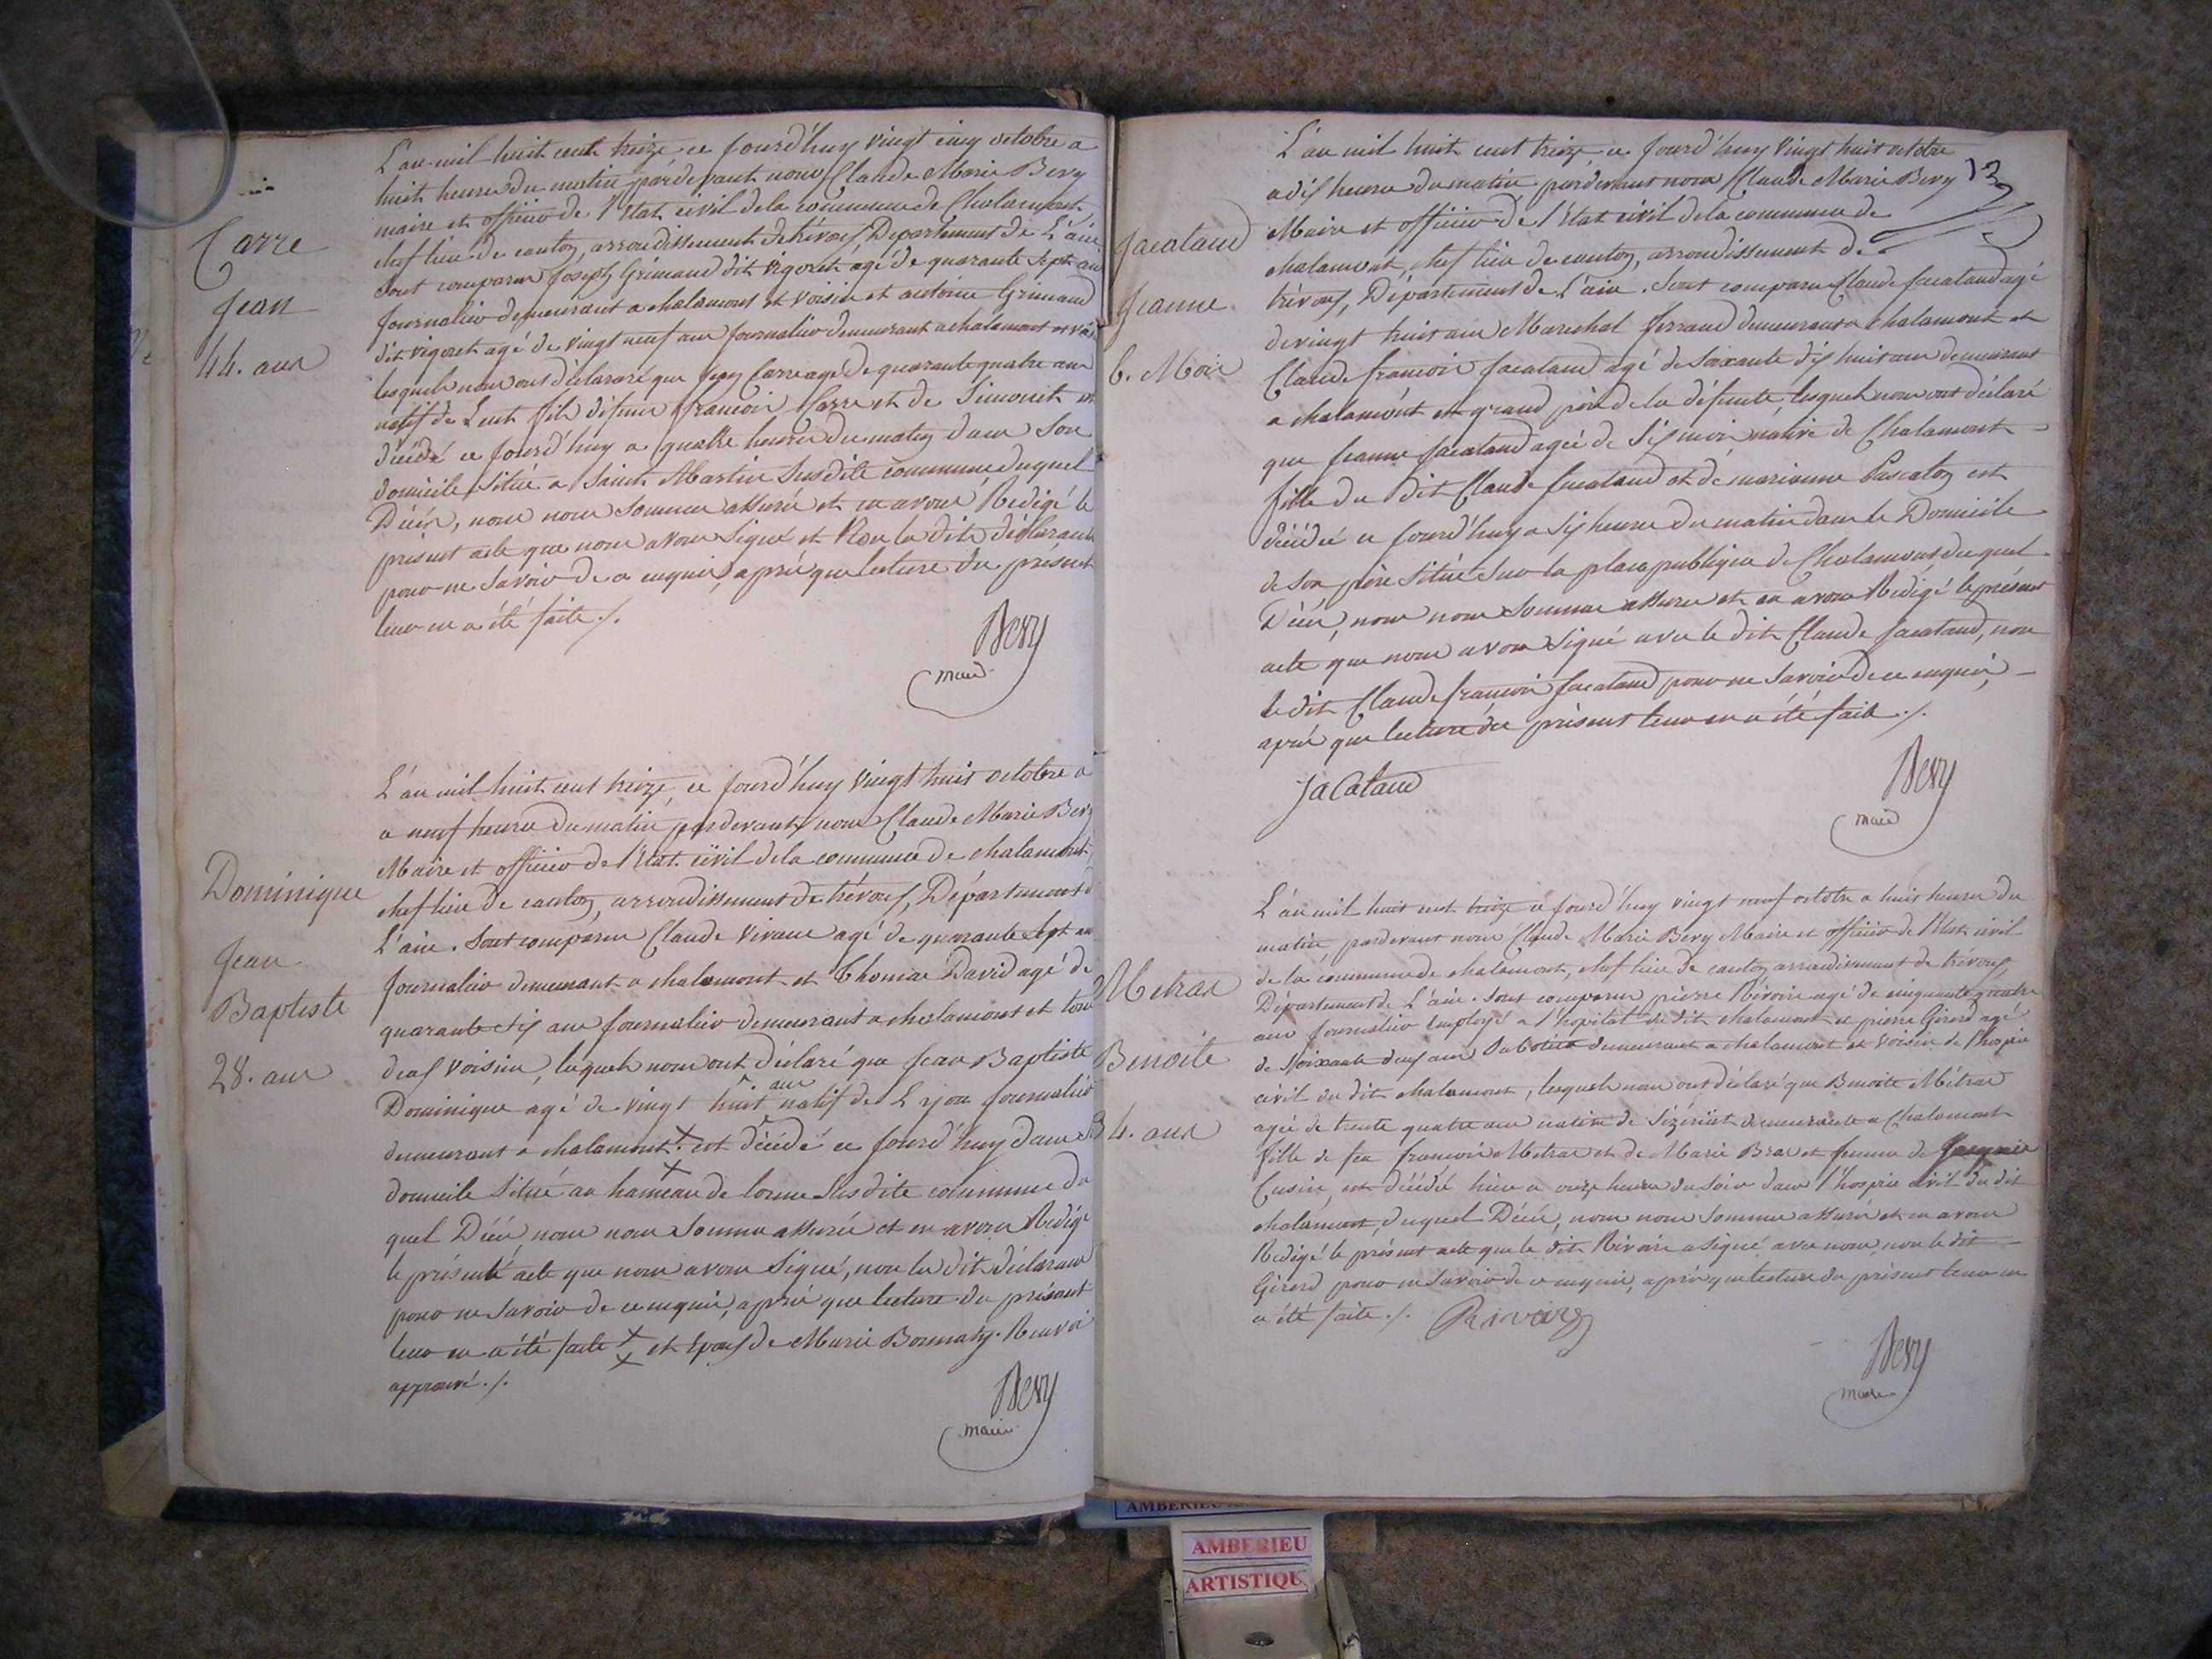 Carre
Jean
44. ans
L'an mil huit cent treize ce jourd'huy vingt cinq octobre a
huit heures du matin pardevant nous Claude Marie Bevy
maire et officier de l'Etat civil de la commune de Chalamont
chef lieu de canton, arrondissement de trévoux, Département de L'ain
Sont comparus Joseph Grimaud dit vigoret agé de quarante Sept ans
Journalier demeurant a chalamont et voisin et antoine Grimaud
dit vigoret agé de vingt neuf ans journalier demeurant a chalamont et
lesquels nous ont déclararé que Carre agé de quarante quatre ans
natif de Lent fils défunt françois Carre et de Simonet est
décédé ce jourd'huy a quatre heures du matin dans Son
domicile situé a Saint Martin Susdite commune duquel
Décès, nous nous sommes assuré et en avons Redigé le
présent acte que nous avons Signé et Non les dits déclarants
pour ne Savoir de ce enquis, après que lecture du présent
leur en a été faite ./.
Bevy
maire
Dominique
Jean
Baptiste
28. ans
L'an mil huit cent treize, ce jourd'huy vingt huit octobre a
a neuf heures du matin pardevant nous Claude Marie Bevy
Maire et officier de l'Etat civil de la commune de chalamont,
chef lieu de canton, arrondissement de trévoux, Département de
L'ain. Sont comparus Claude agé de quarante Sept ans
Journalier demeurant a chalamont et Thomas David agé de
quarante Six ans journalier demeurant a chalamont et tous
deux voisins, lesquels nous ont déclaré que Jean Baptiste
Dominique agé de vingt huit ans natif de Lyon journalier
demeurant a chalamont X est décédé ce jourd'huy dans
domicile Situé au hameau de Susdite commune du
quel Décès, nous nous Sommes assurés et en avons Redigé
le présent acte que nous avons Signé, non les dits déclarans
pour ne Savoir de ce enquis, après que lecture du présent
leur en a été faite X et Epoux de Marie Renvoi
approuvé ./.
Bevy
maire
13
Jacataud
Jeanne
6. Mois
L'an mil huit cent treize, ce jourd'huy vingt huit octobre
a dix heures du matin pardevant nous Claude Marie Bevy
Maire et officier de l'Etat civil de la commune de
chalamont, chef lieu de canton, arrondissement de
trévoux, Département de L'ain. Sont comparu Claude Jacataud agé
de vingt huit ans Marechal ferrand demeurant a chalamont et
Claude françois Jacataud agé de Soixante dix huit ans demeurant
a chalamont et grand père de la défunte, lesquels nous ont déclaré
que Jeanne Jacataud agée de Six mois native de Chalamont
fille du dit Claude Jacataud et de marianne est
décédée ce jourd'huy a Six heures du matin dans le Domicile
de Son père Situé Sur la place publique de Chalamont duquel
Décès, nous nous Sommes assurés et en avons Redigé le présent
acte que nous avons Signé avec le dit Claude Jacataud, non
le dit Claude françois Jacataud pour ne Savoir de ce enquis,
après que lecture du présent leur en a été faite ./.
Jacataud
Bevy
maire
Metras
Benoite
34. ans
L'an mil huit cent treize ce jourd'huy vingt neuf octobre a huit heures du
matin pardevant nous Claude Marie Bevy Maire et officier de l'Etat civil
de la commune de chalamont, chef lieu de canton, arrondissement de trévoux,
Département de L'ain. Sont comparus pierre Rivoire agé de cinquante quatre
ans journalier Employé a l'hopital du dit chalamont et pierre Girerd agé
de Soixante deux ans Sabotier demeurant a chalamont et voisin de l'hospice
civil du dit chalamont, lesquels nous ont déclaré que Benoite Métras
agée de trente quatre ans native de demeurante a Chalamont
fille de feu françois Metras et de Marie Bras et femme de
Cusin, est décédée hier a onze heures du Soir dans l'hospice civil du dit
chalamont, duquel Décès, nous nous Sommes assurés et en avons
Redigé le présent acte que le dit Rivoire a Signé avec nous, non le dit
Girerd pour ne Savoir de ce enquis, après que lecture du présent leur en
a été faite ./. Rivoire
Bevy
maire
AMBERIEU
AMBERIEU
ARTISTIQU